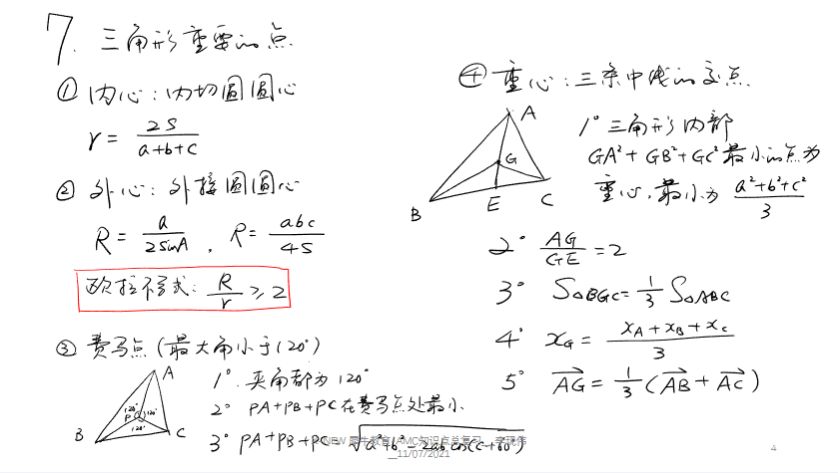 7. 三角形重要的点
① 内心：内切圆圆心
r = 2S/(a+b+c)
② 外心：外接圆圆心
R = a/(2sinA) , R = abc/(4S)
欧拉不等式：R/r ≥ 2
③ 费马点（最大角小于120°）
A
B
C
P
120°
120°
120°
1° 夹角都为120°
2° PA+PB+PC在费马点处最小
3° PA+PB+PC = √(a²+b²-2ab cos(C+60°))
④ 重心：三条中线的交点
A
G
B
E
C
1° 三角形内部
GA²+GB²+GC²最小的点为
重心，最小为 (a²+b²+c²)/3
2° AG/GE = 2
3° S△BGC = 1/3 S△ABC
4° x_G = (x_A + x_B + x_C)/3
5° AG→ = 1/3(AB→ + AC→)
11/07/2021
4